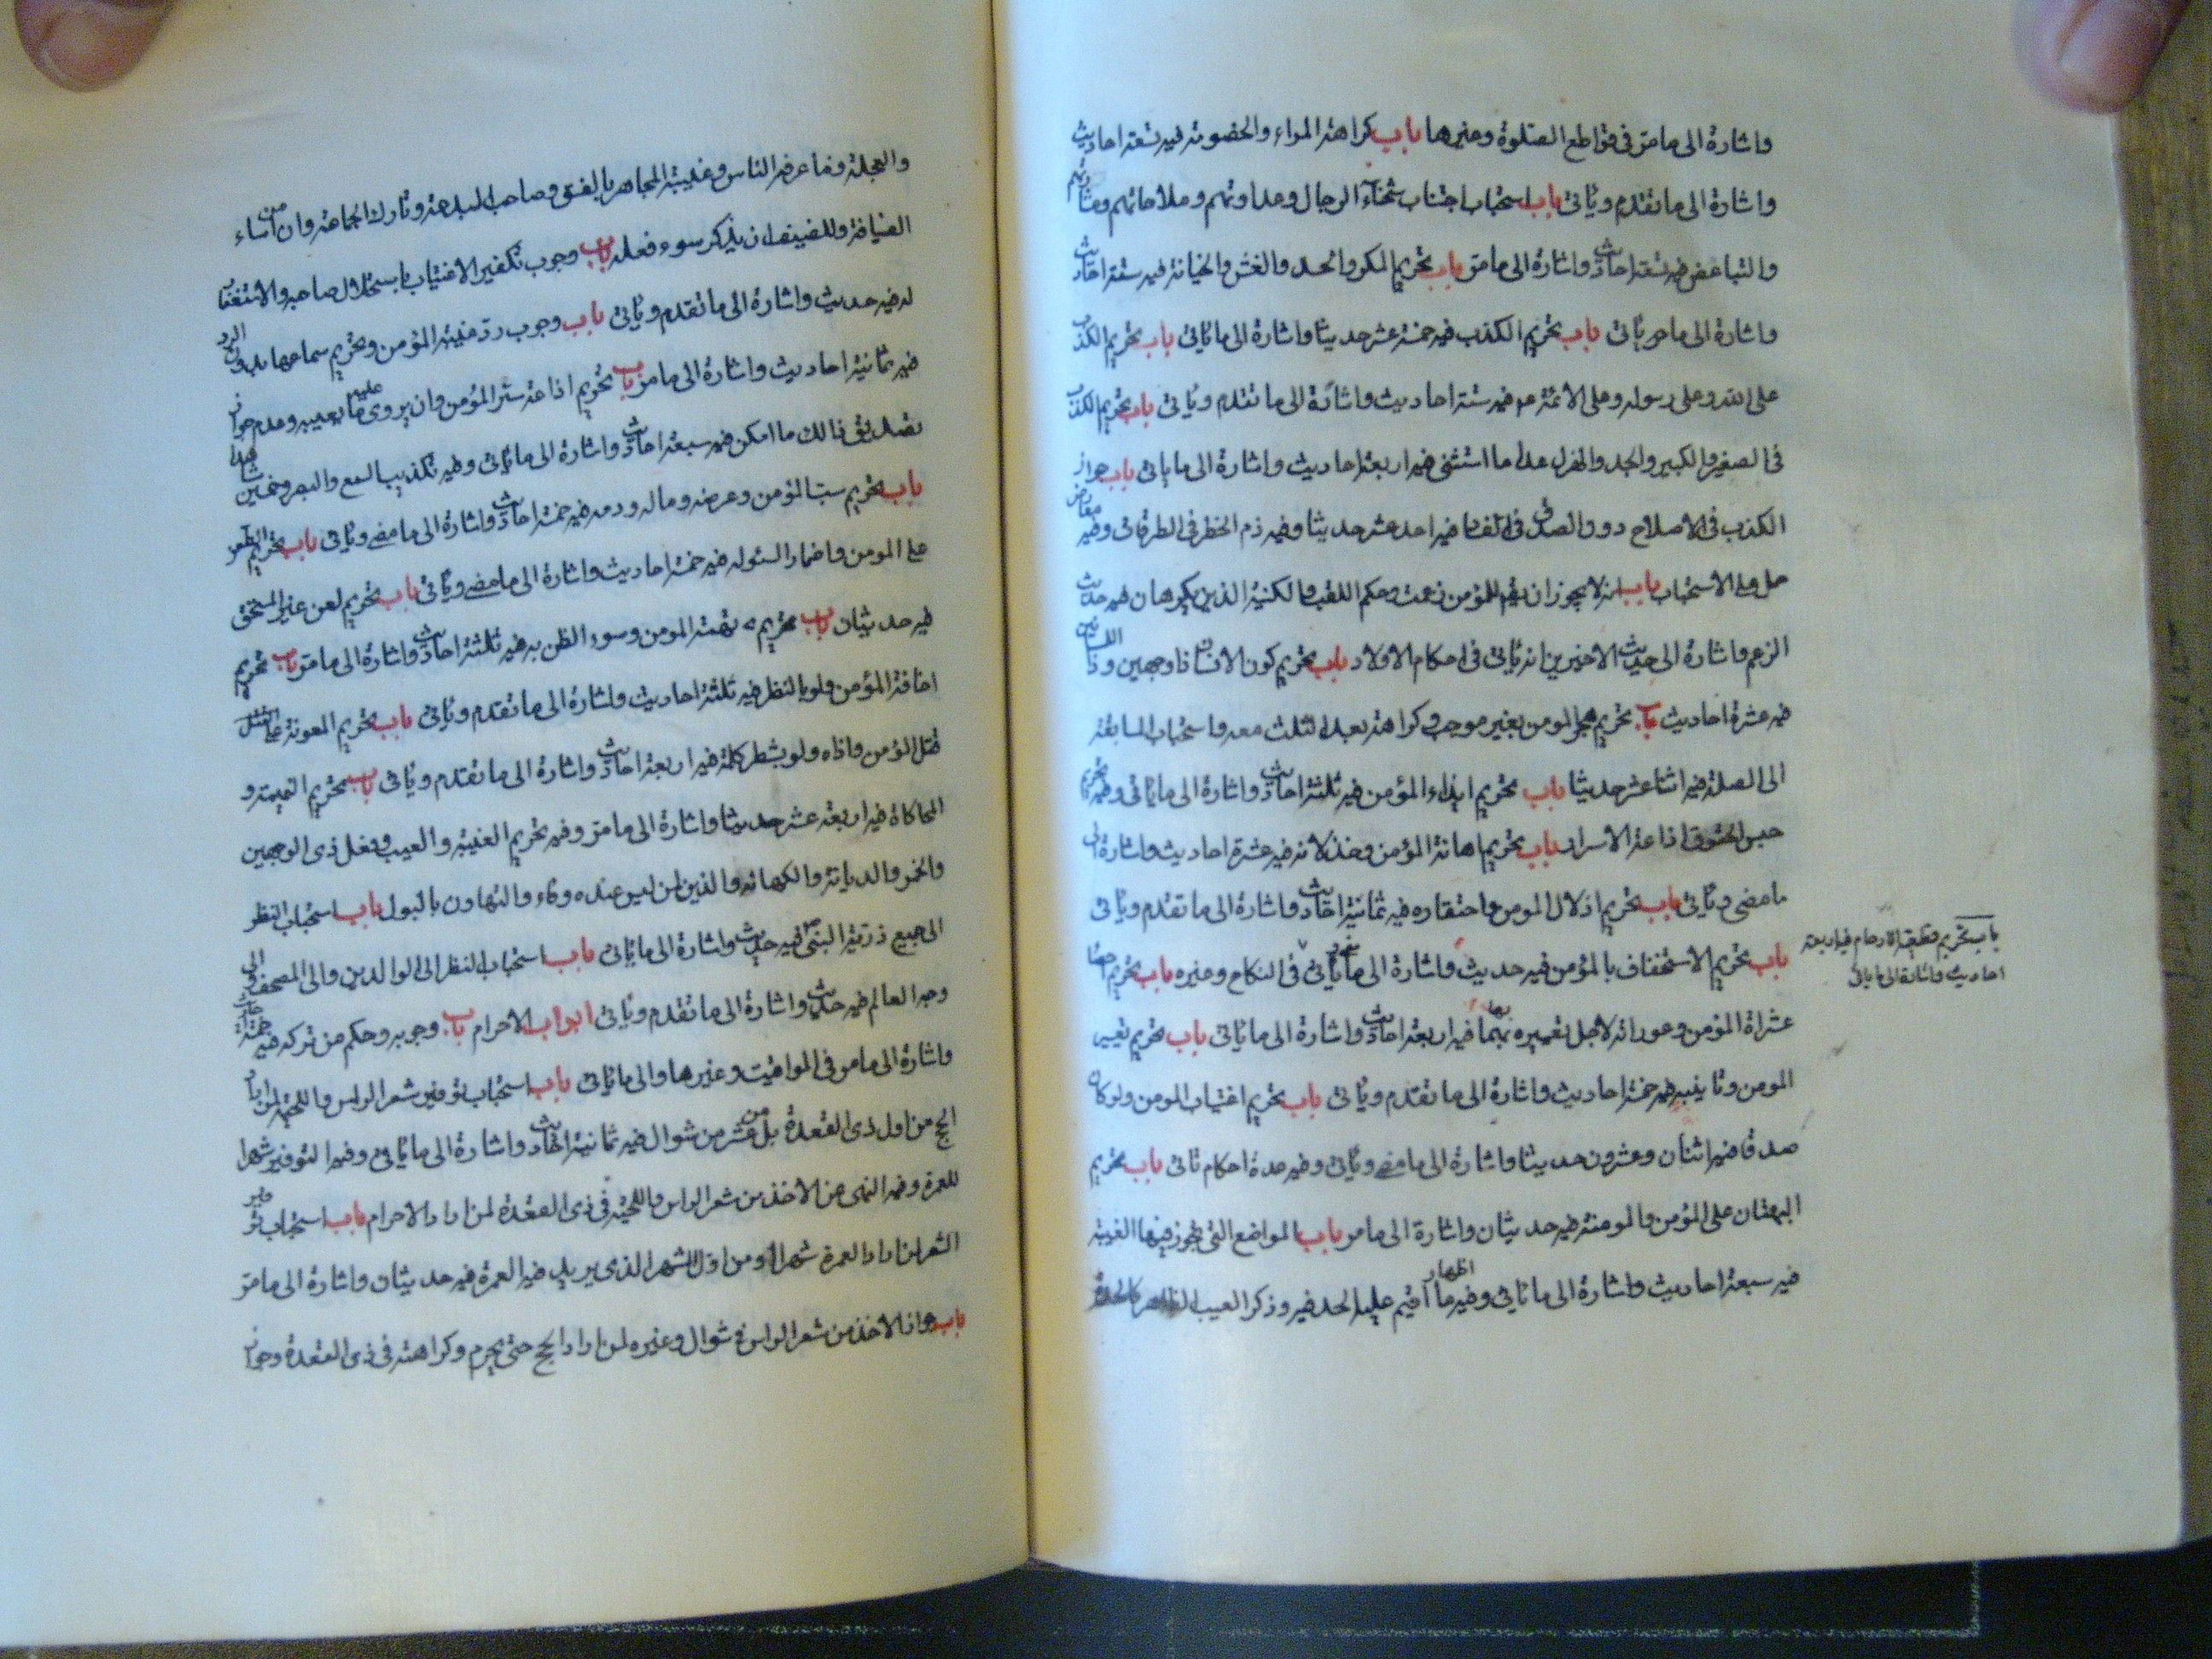 واشارة الى ما مرّ فى قواطع الصلوة وغيرها باب كراهة المراء والخصومة فيه تسعة احاديث
واشارة الى ما تقدم وياتى باب استحباب اجتناب شحناء الرجال وعداوتهم وملاحاتهم ومشارتهم
والتباغض فيه تسعة احاديث واشارة الى ما مرّ باب تحريم المكر والحسد والغش والخيانة فيه ستة احاديث
واشارة الى ما مر وياتى باب تحريم الكذب فيه خمسة عشر حديثا واشارة الى ما ياتى باب تحريم الكذب
على الله وعلى رسوله وعلى الائمة ع م فيه ستة احاديث واشارة الى ما تقدم وياتى باب تحريم الكذب
فى الصغير والكبير والجد والهزل عدا ما استثنى فيه اربعة احاديث واشارة الى ما ياتى باب جواز
الكذب فى الاصلاح دون الصدق فى الفساد فيه احد عشر حديثا وفيه ذم الخطر فى الطرقات وفيه معارض
حمل على الاستحباب باب انه لا يجوز ان يقم للمؤمن زعمت وحكم اللقب والكنية الذين يكرهان فيه حديث
الزعم واشارة الى حديث الاخيرين انه ياتى فى احكام الاولاد باب تحريم كون الانسان ذا وجهين وذا اللسانين
فيه عشرة احاديث باب تحريم هجر المومن بغير موجب وكراهته بعد الثلث معه واستحباب المسابقة
الى الصلة فيه اثنا عشر حديثا باب تحريم ايذاء المؤمن فيه ثلثة احاديث واشارة الى ما ياتى وفيه تحريم
حبس الحقوق اذاعة الاسرار باب تحريم اهانة المؤمن وخذلانه فيه عشرة احاديث واشارة الى
ما مضى وياتى باب تحريم اذلال المومن واحتقاره فيه ثمانية احاديث واشارة الى ما تقدم وياتى
باب تحريم الاستخفاف بالمؤمن فيه حديث واشارة الى ما ياتى فى النكاح وغيره باب تحريم احصاء
باب تحريم قطيعة الارحام فيه اربعة
احاديث واشارة الى ما ياتى
عثراة المؤمن وعوراته لاجل تعييره بها فيه اربعة احاديث واشارة الى ما ياتى باب تحريم تعيير
المومن وتانيبه فيه خمسة احاديث واشارة الى ما تقدم وياتى باب تحريم اغتياب المومن ولو كان
صدقا فيه اثنان وعشرون حديثا واشارة الى ما مضى وياتى وفيه عدة احكام تاتى باب تحريم
البهتان على المؤمن والمومنة فيه حديثان واشارة الى ما مر باب المواضع التى تجوز فيها الغيبة
فيه سبعة احاديث واشارة الى ما ياتى وفيه اظهار ما اقيم عليه الحد فيه وذكر العيب الظاهر كالحدة
والعجلة وما عرفه الناس وغيبة المجاهر بالفسق وصاحب البدعة وتارك الجماعة وان من اساء
الضيافة وللضيف ان يذكر سوء فعله باب وجوب تكفير الاغتياب باستحلال صاحبه والاستغفار
له فيه حديث واشارة الى ما تقدم وياتى باب وجوب ردّ غيبة المؤمن وتحريم سماعها بدون الرد
فيه ثمانية احاديث واشارة الى ما مر باب تحريم اذاعة سرّ المؤمن وان يروى عليه ما يعيبه وعدم جواز
تصديق ذالك ما امكن فيه سبعة احاديث واشارة الى ما ياتى وفيه تكذيب السمع والبصر وخمسين شاهدا
باب تحريم سبّ المؤمن وعرضه وماله ودمه فيه خمسة احاديث واشارة الى ما مضى وياتى باب تحريم الطعن
على المومن واضمار السوء له فيه خمسة احاديث واشارة الى ما مضى وياتى باب تحريم لعن غير المستحق
فيه حديثان باب تحريم تهمة المومن وسوء الظن به فيه ثلثة احاديث واشارة الى ما مرّ باب تحريم
اخافة المؤمن ولو بالنظر فيه ثلثة احاديث واشارة الى ما تقدم وياتى باب تحريم المعونة على
قتل المؤمن واذاه ولو بشطر كلمة فيه اربعة احاديث واشارة الى ما تقدم وياتى باب تحريم النميمة و
المحاكاة فيه اربعة عشر حديثا واشارة الى ما مرّ وفيه تحريم الغيبة والعيب وفعل ذى الوجهين
والخمر والدياثة والكهانة والدين لمن ليس عنده وفاء والتهاون بالبول باب استحباب النظر
الى جميع ذرية النبى ص فيه حديث واشارة الى ما ياتى باب استحباب النظر الى الوالدين والى المصحف والى
وجه العالم فيه حديث واشارة الى ما تقدم وياتى ابواب الاحرام باب وجوبه وحكم من تركه فيه خمسة احاديث
واشارة الى ما مر فى المواقيت وغيرها والى ما ياتى باب استحباب توفير شعر الراس واللحية لمن اراد
الحج من اول ذى القعدة بل من عشر من شوال فيه ثمانية احاديث واشارة الى ما ياتى وفيه التوفير شهرا
للعمرة وفيه النهى عن الاخذ من شعر الراس واللحية فى ذى القعدة لمن اراد الاحرام باب استحباب توفير
الشعر لمن اراد العمرة شهرا او من اوّل الشهر الذى يريد فيه العمرة فيه حديثان واشارة الى ما مرّ
باب جواز الاخذ من شعر الراس فى شوال وغيره لمن اراد الحج حتى يحرم وكراهته فى ذى القعدة وجواز